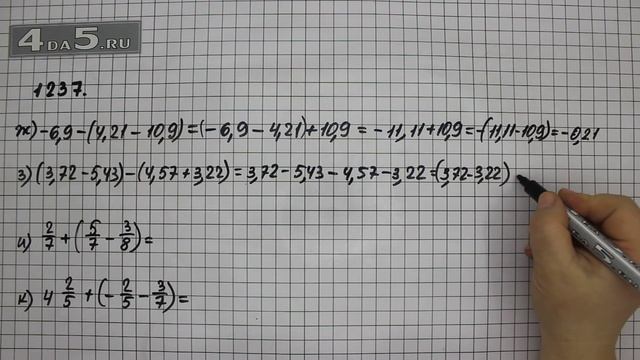 4DA5.RU
1237.
ж) -6,9-(4,21-10,9)=(-6,9-4,21)+10,9=-11,11+10,9=-(11,11-10,9)=-0,21
з) (3,72-5,43)-(4,57+3,22)=3,72-5,43-4,57-3,22=(3,72-3,22)
и) 2/7+(5/7-3/8)=
к) 4 2/5+(-2/5-3/7)=